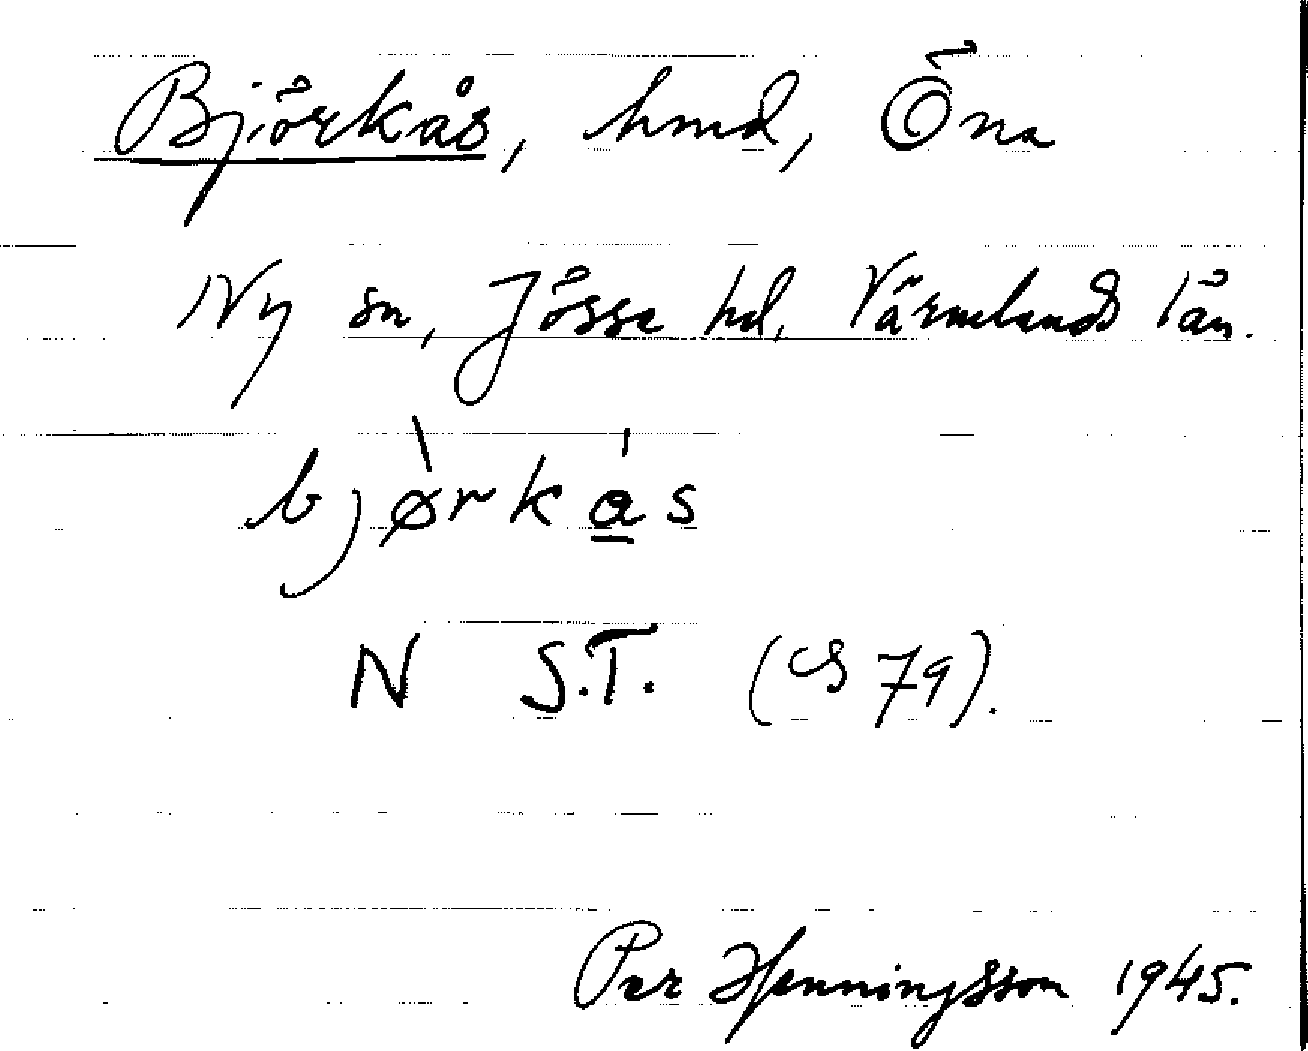 Björkås, hmd, Öna
Ny sn, Jösse hd, Värmlands län.
bjø̀rkås
N S.T. (S 79).
Per Henningsson 1945.